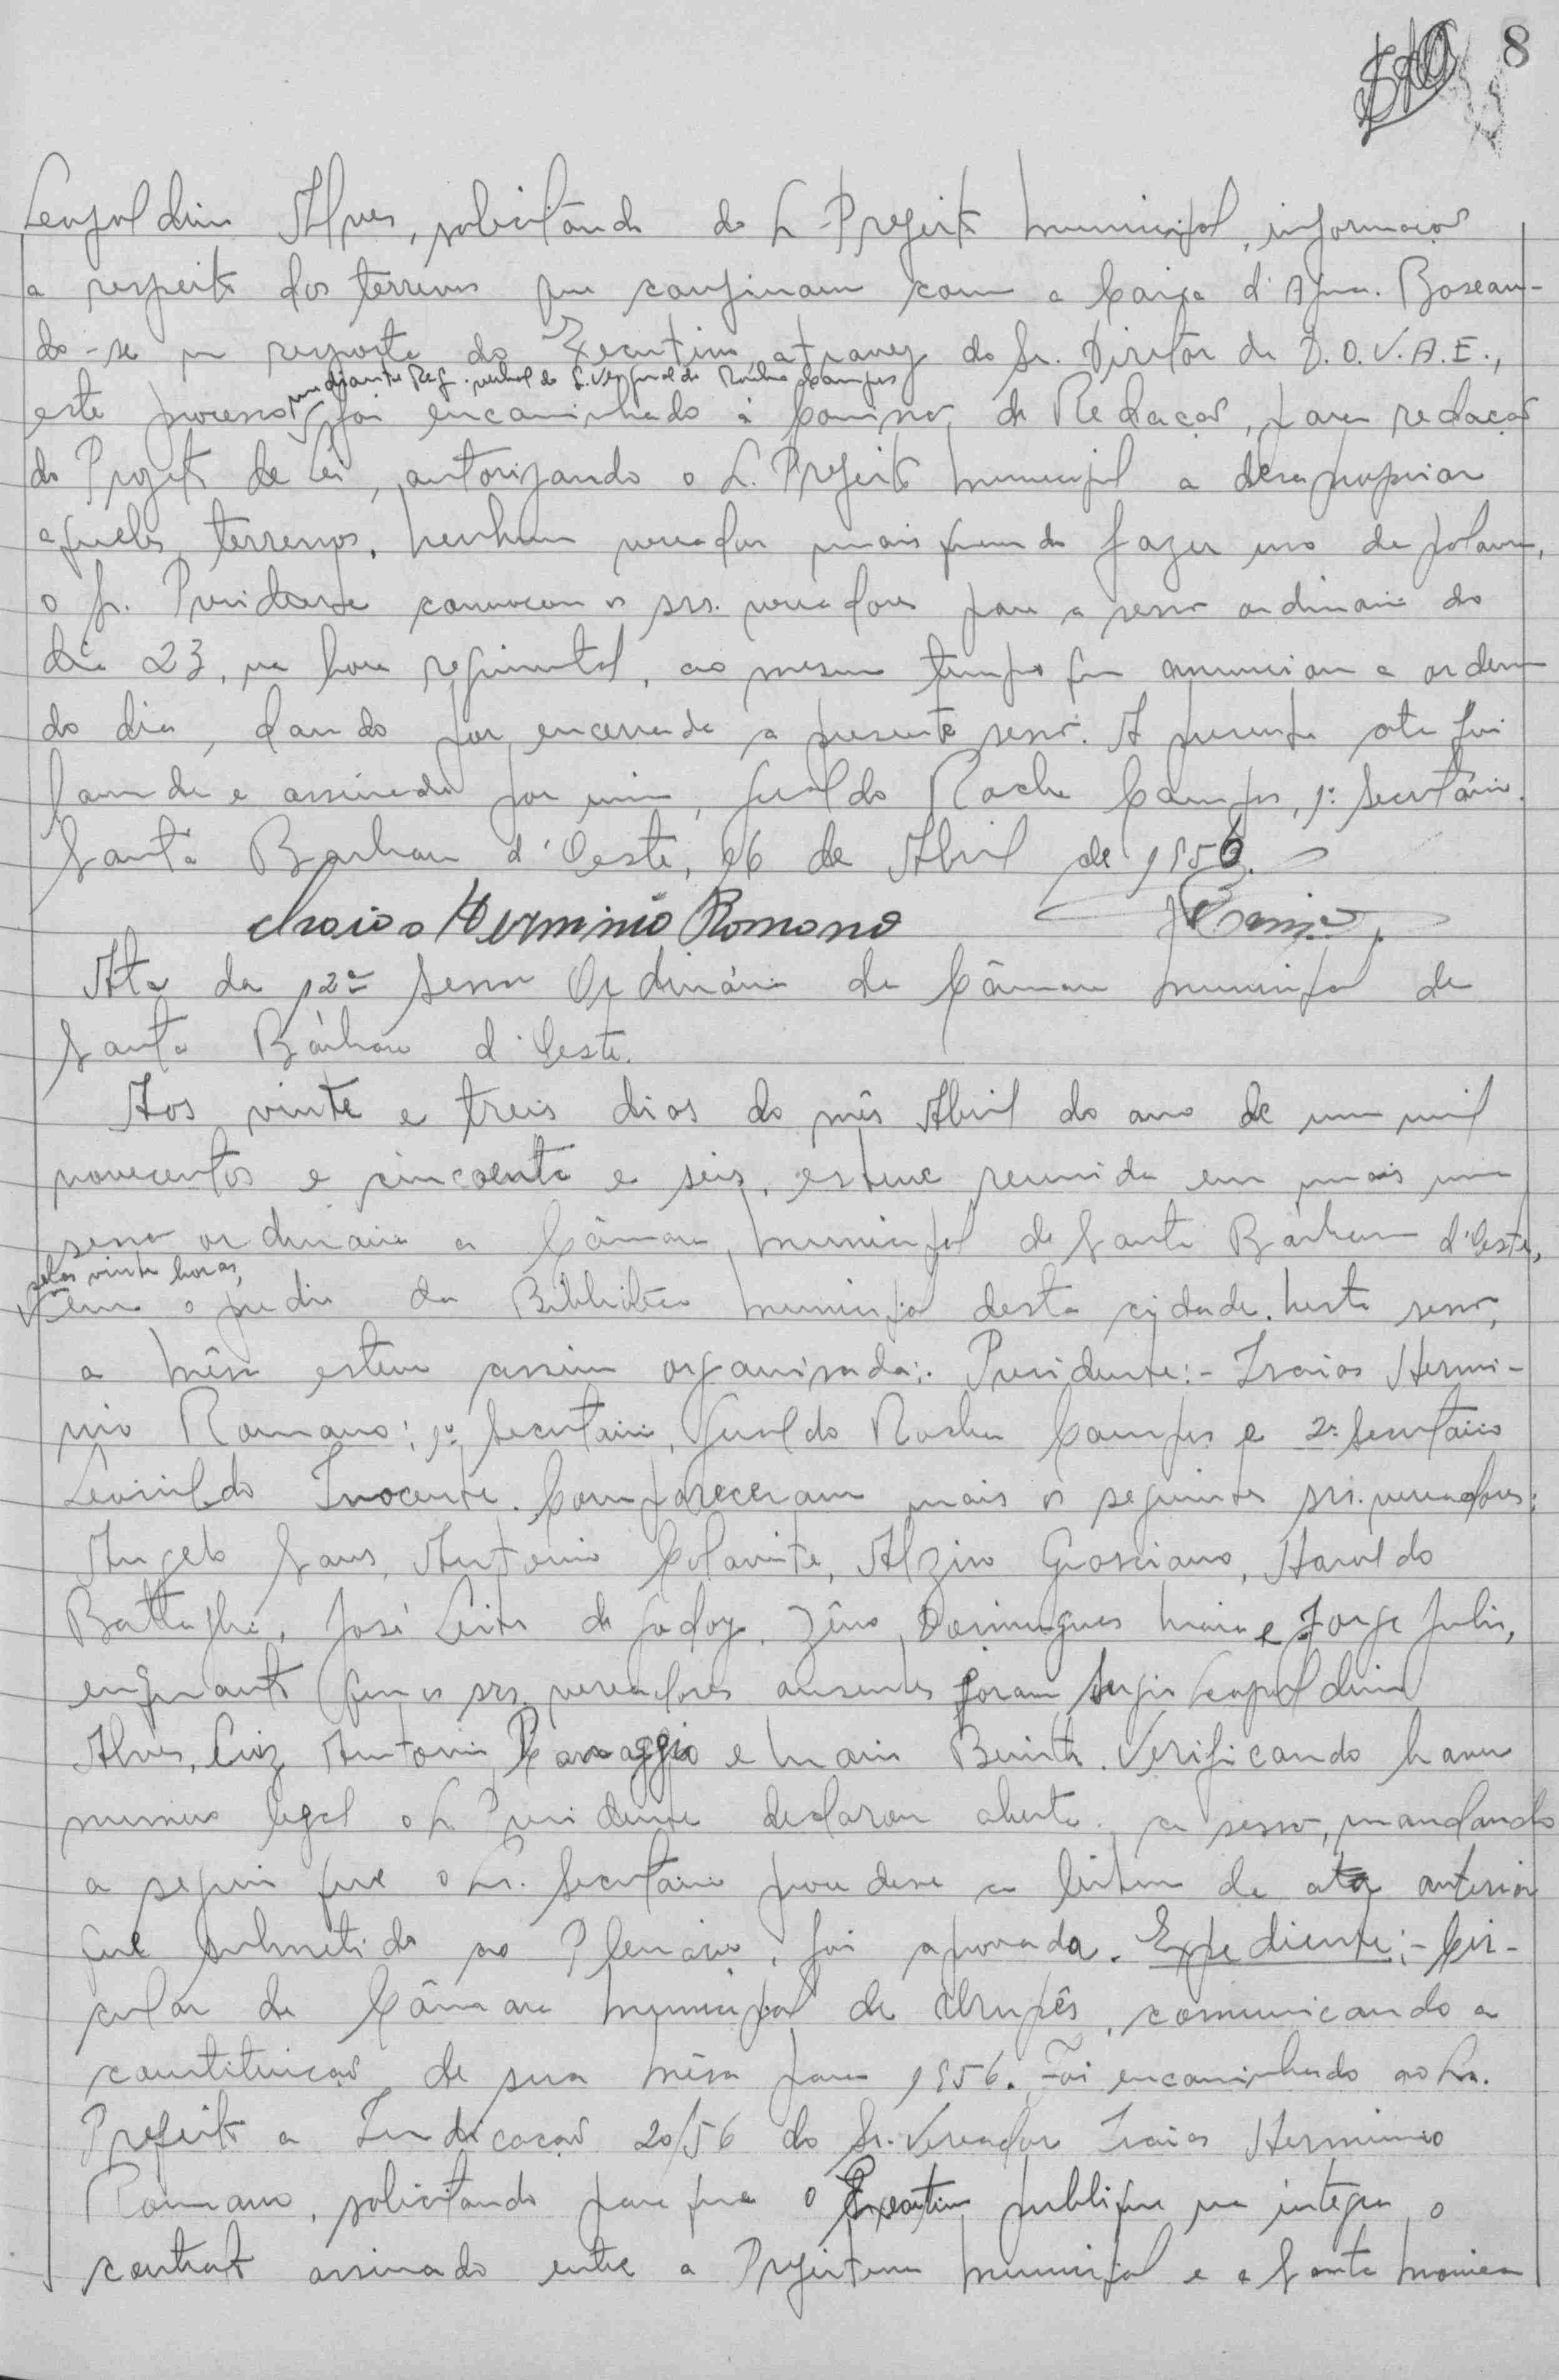 8
Leopoldino Alves, solicitando do Sr Prefeito Municipal, informação
a respeito dos terrenos que confinam com a Caixa d'Agua. Basean-
do-se na resposta do Executivo, atravez do Sr. Diretor da D.O.V.A.E.,
mediante Req. verbal do S. Ver. Geraldo Rocha Campos
este processo foi encaminhado à Comissão de Redação, para redação
do Projeto de Lei, autorizando o S. Prefeito Municipal a desapropriar
aqueles terrenos. Nenhum vereador mais querendo fazer uso da palavra,
o Sr. Presidente convocou os srs. vereadores para a sessão ordinaria do
dia 23, na hora regimental, ao mesmo tempo que anunciou a ordem
do dia, dando por encerrada a presente sessão. A presente ata foi
lavrada e assinada por mim, Geraldo Rocha Campos, 1º Secretário.
Santa Barbara d'Oeste, 16 de Abril de 1956.
Isaias Herminio Romano
Ata da 12ª Sessão Ordinária da Câmara Municipal de
Santa Bárbara d'Oeste.
Aos vinte e treis dias do mês Abril do ano de um mil
novecentos e cincoenta e seis, esteve reunida em mais uma
sessão ordinaria a Câmara Municipal de Santa Bárbara d'Oeste,
pelas vinte horas,
em o predio da Biblioteca Municipal desta cidade. Nesta sessão,
a mêsa esteve assim organisada:- Presidente:- Isaias Hermi-
nio Romano; 1º Secretario, Geraldo Rocha Campos e 2º Secretário
Leonildo Inocente. Compareceram mais os seguintes srs. vereadores:
Angelo Sans, Antonio Colavite, Alziro Grosciano, Haroldo
Battaglia, José Leite de Godoy, Zêno Domingues Maia e Jorge Julio,
enquanto que os srs. vereadores ausentes foram Sergio Leopoldino
Alves, Luiz Antonio Caraggio e Mario Benito. Verificando haver
numero legal o Sr Presidente declarou aberta a sessão, mandando
a seguir que o Sr. Secretário procedesse a leitura da ata anterior
que submetida ao Plenário, foi aprovada. Expediente:- Cir-
cular da Câmara Municipal de Urupês, comunicando a
constituição de sua mêsa para 1956. Foi encaminhado ao Sr.
Prefeito a Indicação 20/56 do Sr. Vereador Isaias Herminio
Romano, solicitando para que o Executivo publique na integra o
contrato assinado entre a Prefeitura Municipal e a Santa Monica